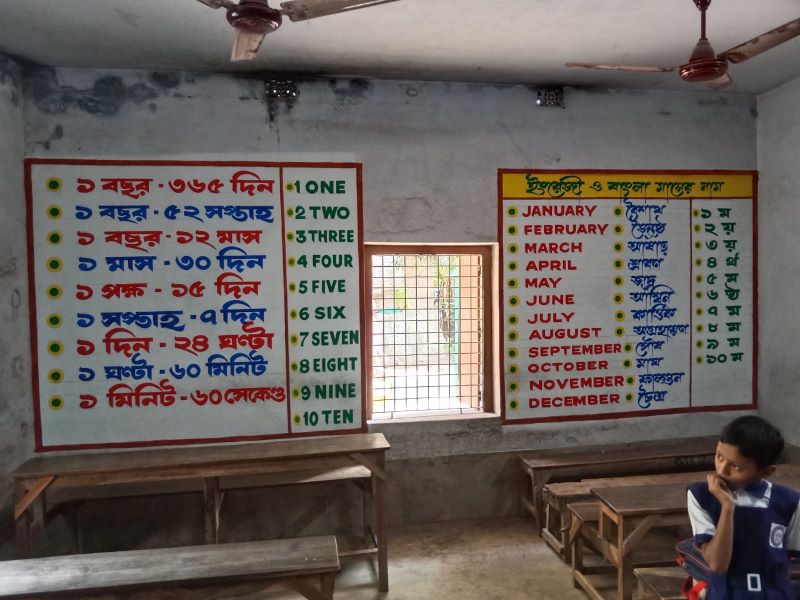 ১ বছর - ৩৬৫ দিন
১ বছর - ৫২ সপ্তাহ
১ বছর - ১২ মাস
১ মাস - ৩০ দিন
১ পক্ষ - ১৫ দিন
১ সপ্তাহ - ৭ দিন
১ দিন - ২৪ ঘণ্টা
১ ঘণ্টা - ৬০ মিনিট
১ মিনিট - ৬০ সেকেণ্ড
1 ONE
2 TWO
3 THREE
4 FOUR
5 FIVE
6 SIX
7 SEVEN
8 EIGHT
9 NINE
10 TEN
ইংরেজী ও বাংলা মাসের নাম
JANUARY
FEBRUARY
MARCH
APRIL
MAY
JUNE
JULY
AUGUST
SEPTEMBER
OCTOBER
NOVEMBER
DECEMBER
বৈশাখ
জ্যৈষ্ঠ
আষাঢ়
শ্রাবণ
ভাদ্র
আশ্বিন
কার্ত্তিক
অগ্রহায়ণ
পৌষ
মাঘ
ফাল্গুন
চৈত্র
১ ম
২ য়
৩ য়
৪ র্থ
৫ ম
৬ ষ্ঠ
৭ ম
৮ ম
৯ ম
১০ ম